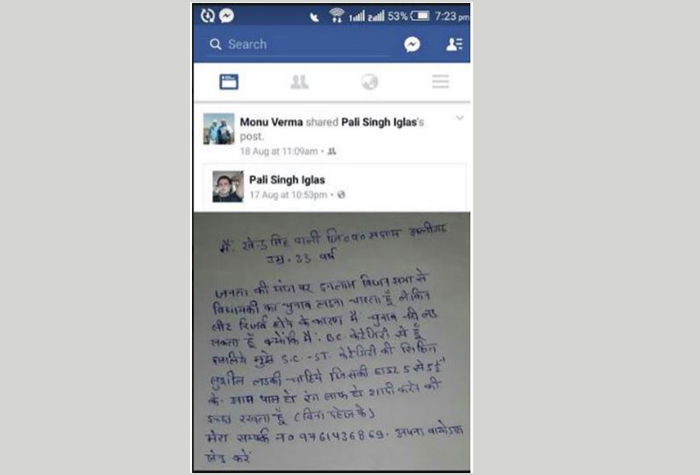 53% 7:23 pm
Search
Monu Verma shared Pali Singh Iglas's
post.
18 Aug at 11:09am
Pali Singh Iglas
17 Aug at 10:53pm
मैं: सिंह पाली जि०प० सदस्य अलीगढ़
उम्र. 33 वर्ष
जनता की मांग पर इगलास विधान सभा से
विधायकी का चुनाव लडना चाहता हूँ लेकिन
सीट रिजर्व होने के कारण मैं चुनाव नही लड
सकता हूँ क्योंकि मैं: B.C. केटेगिरी से हूँ
इसलिये मुझे S.C.-ST. केटेगिरी की शिक्षित
सुशील लडकी चाहिये जिसकी हाइट 5 से 5
के. आस पास हो रंग साफ हो शादी करने की
इच्छा रखता हूँ (बिना दहेज के)
मेरा सम्पर्क न० 9761436869. अपना बायोडाटा
करें